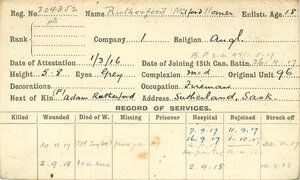 Reg. No. 204352 Name Rutherford Milford Homer Enlist. Age 18
Rank Pte Company 1 Religion Angl
Date of Attestation 1/3/16 Date of Joining 15th Can. Battn. 26.4.17
Height 5.8 Eyes Grey Complexion med Original Unit 96
Decorations Occupation Fireman
Next of Kin (F) Adam Rutherford Address Sutherland, Sask.
(RECORD OF SERVICES)
Killed Wounded Died of W. Missing Prisoner Hospital Rejoined Struck off
7.9.17 11.9.17
30.11.17 30.11.17
2.9.18 2.9.18